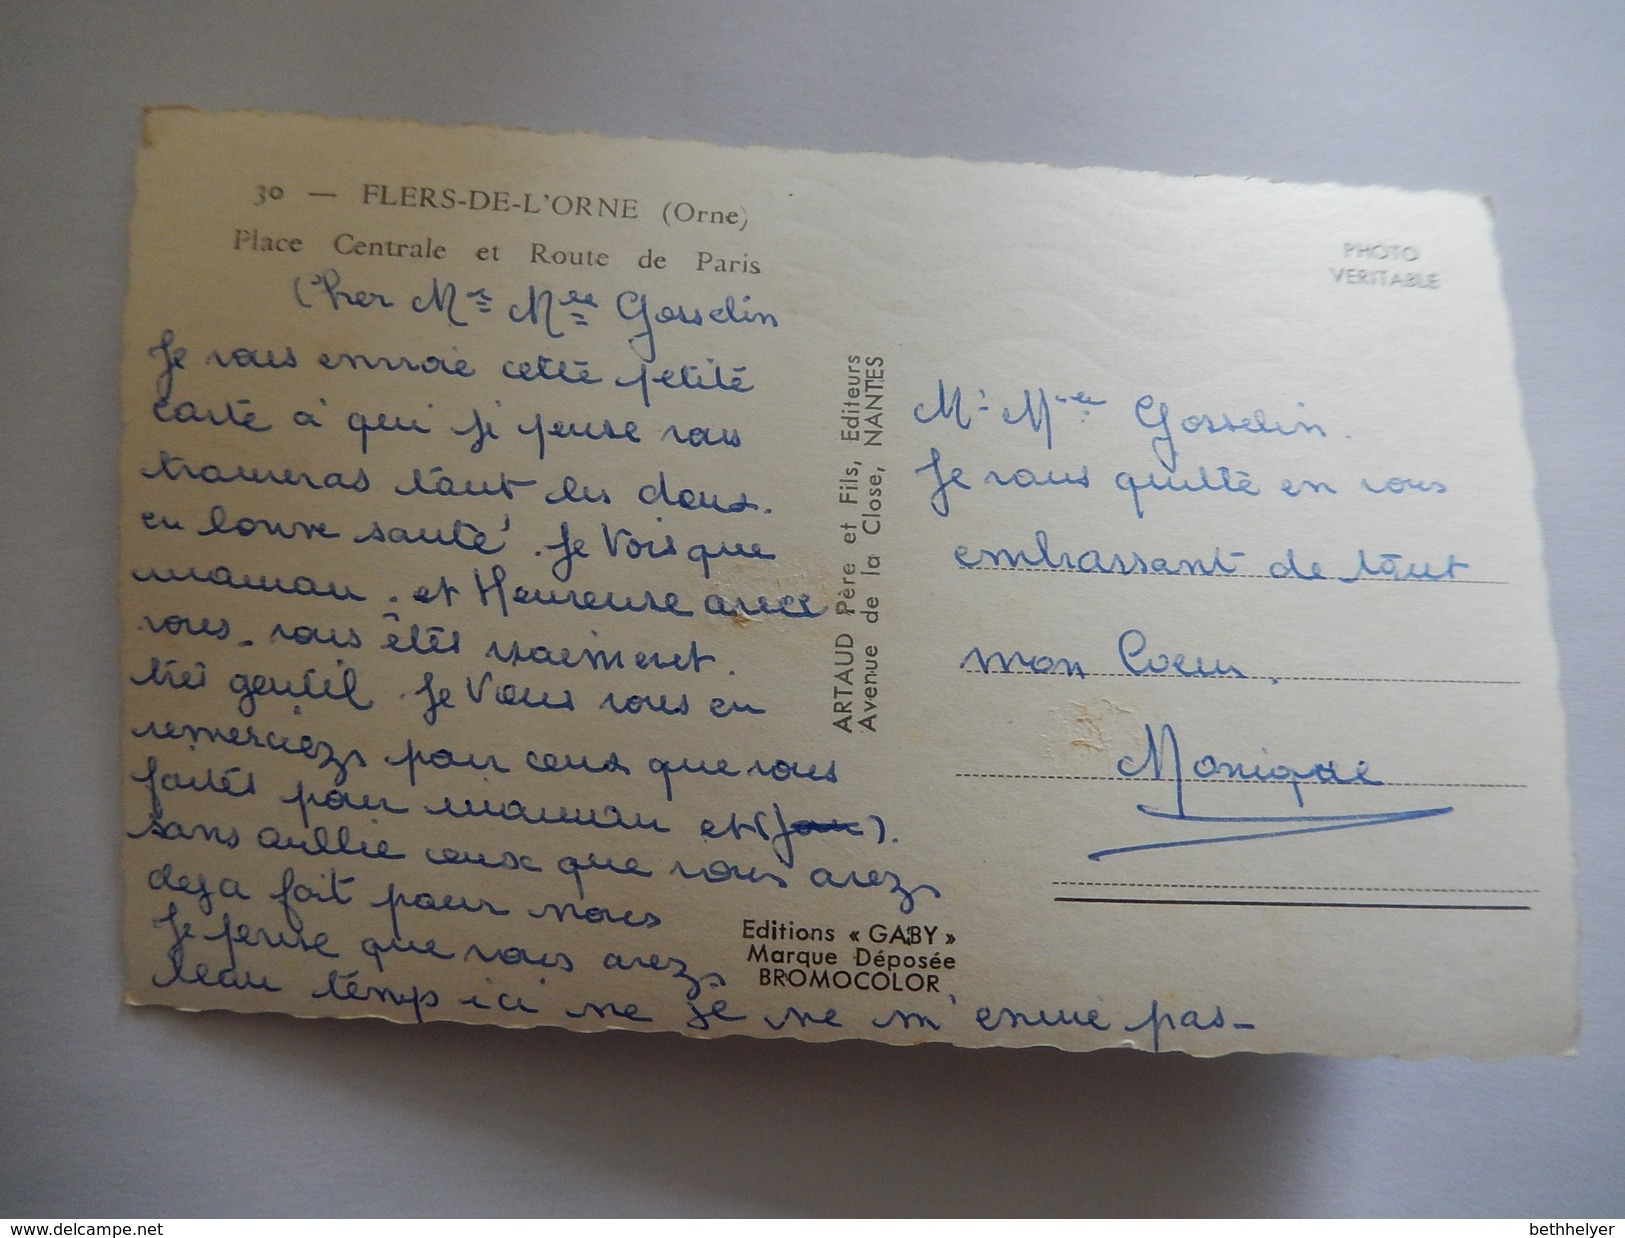 30 — FLERS-DE-L'ORNE (Orne)
Place Centrale et Route de Paris
Cher Mr Mme Gosselin
Je vous envoie cette petite
carte à qui je pense vous
trouveras tout les deux.
en bonne santé. Je vois que
maman. et Heureuse avec
vous. vous êtes vraiment.
très gentil. Je veux vous en
remerciez pour ceux que vous
faites pour maman et ( ).
sans oublie ceux que vous avez
deja fait pour nous
Je pense que vous avez
beau temp ici ne je ne m'ennuie pas-
ARTAUD Père et Fils, Editeurs
Avenue de la Close, NANTES
Editions « GABY »
Marque Déposée
BROMOCOLOR
PHOTO
VERITABLE
Mr Mme Gosselin.
Je vous quitte en vous
embrassant de tout
mon Coeur.
Monique
delcampe.net
bethhelyer